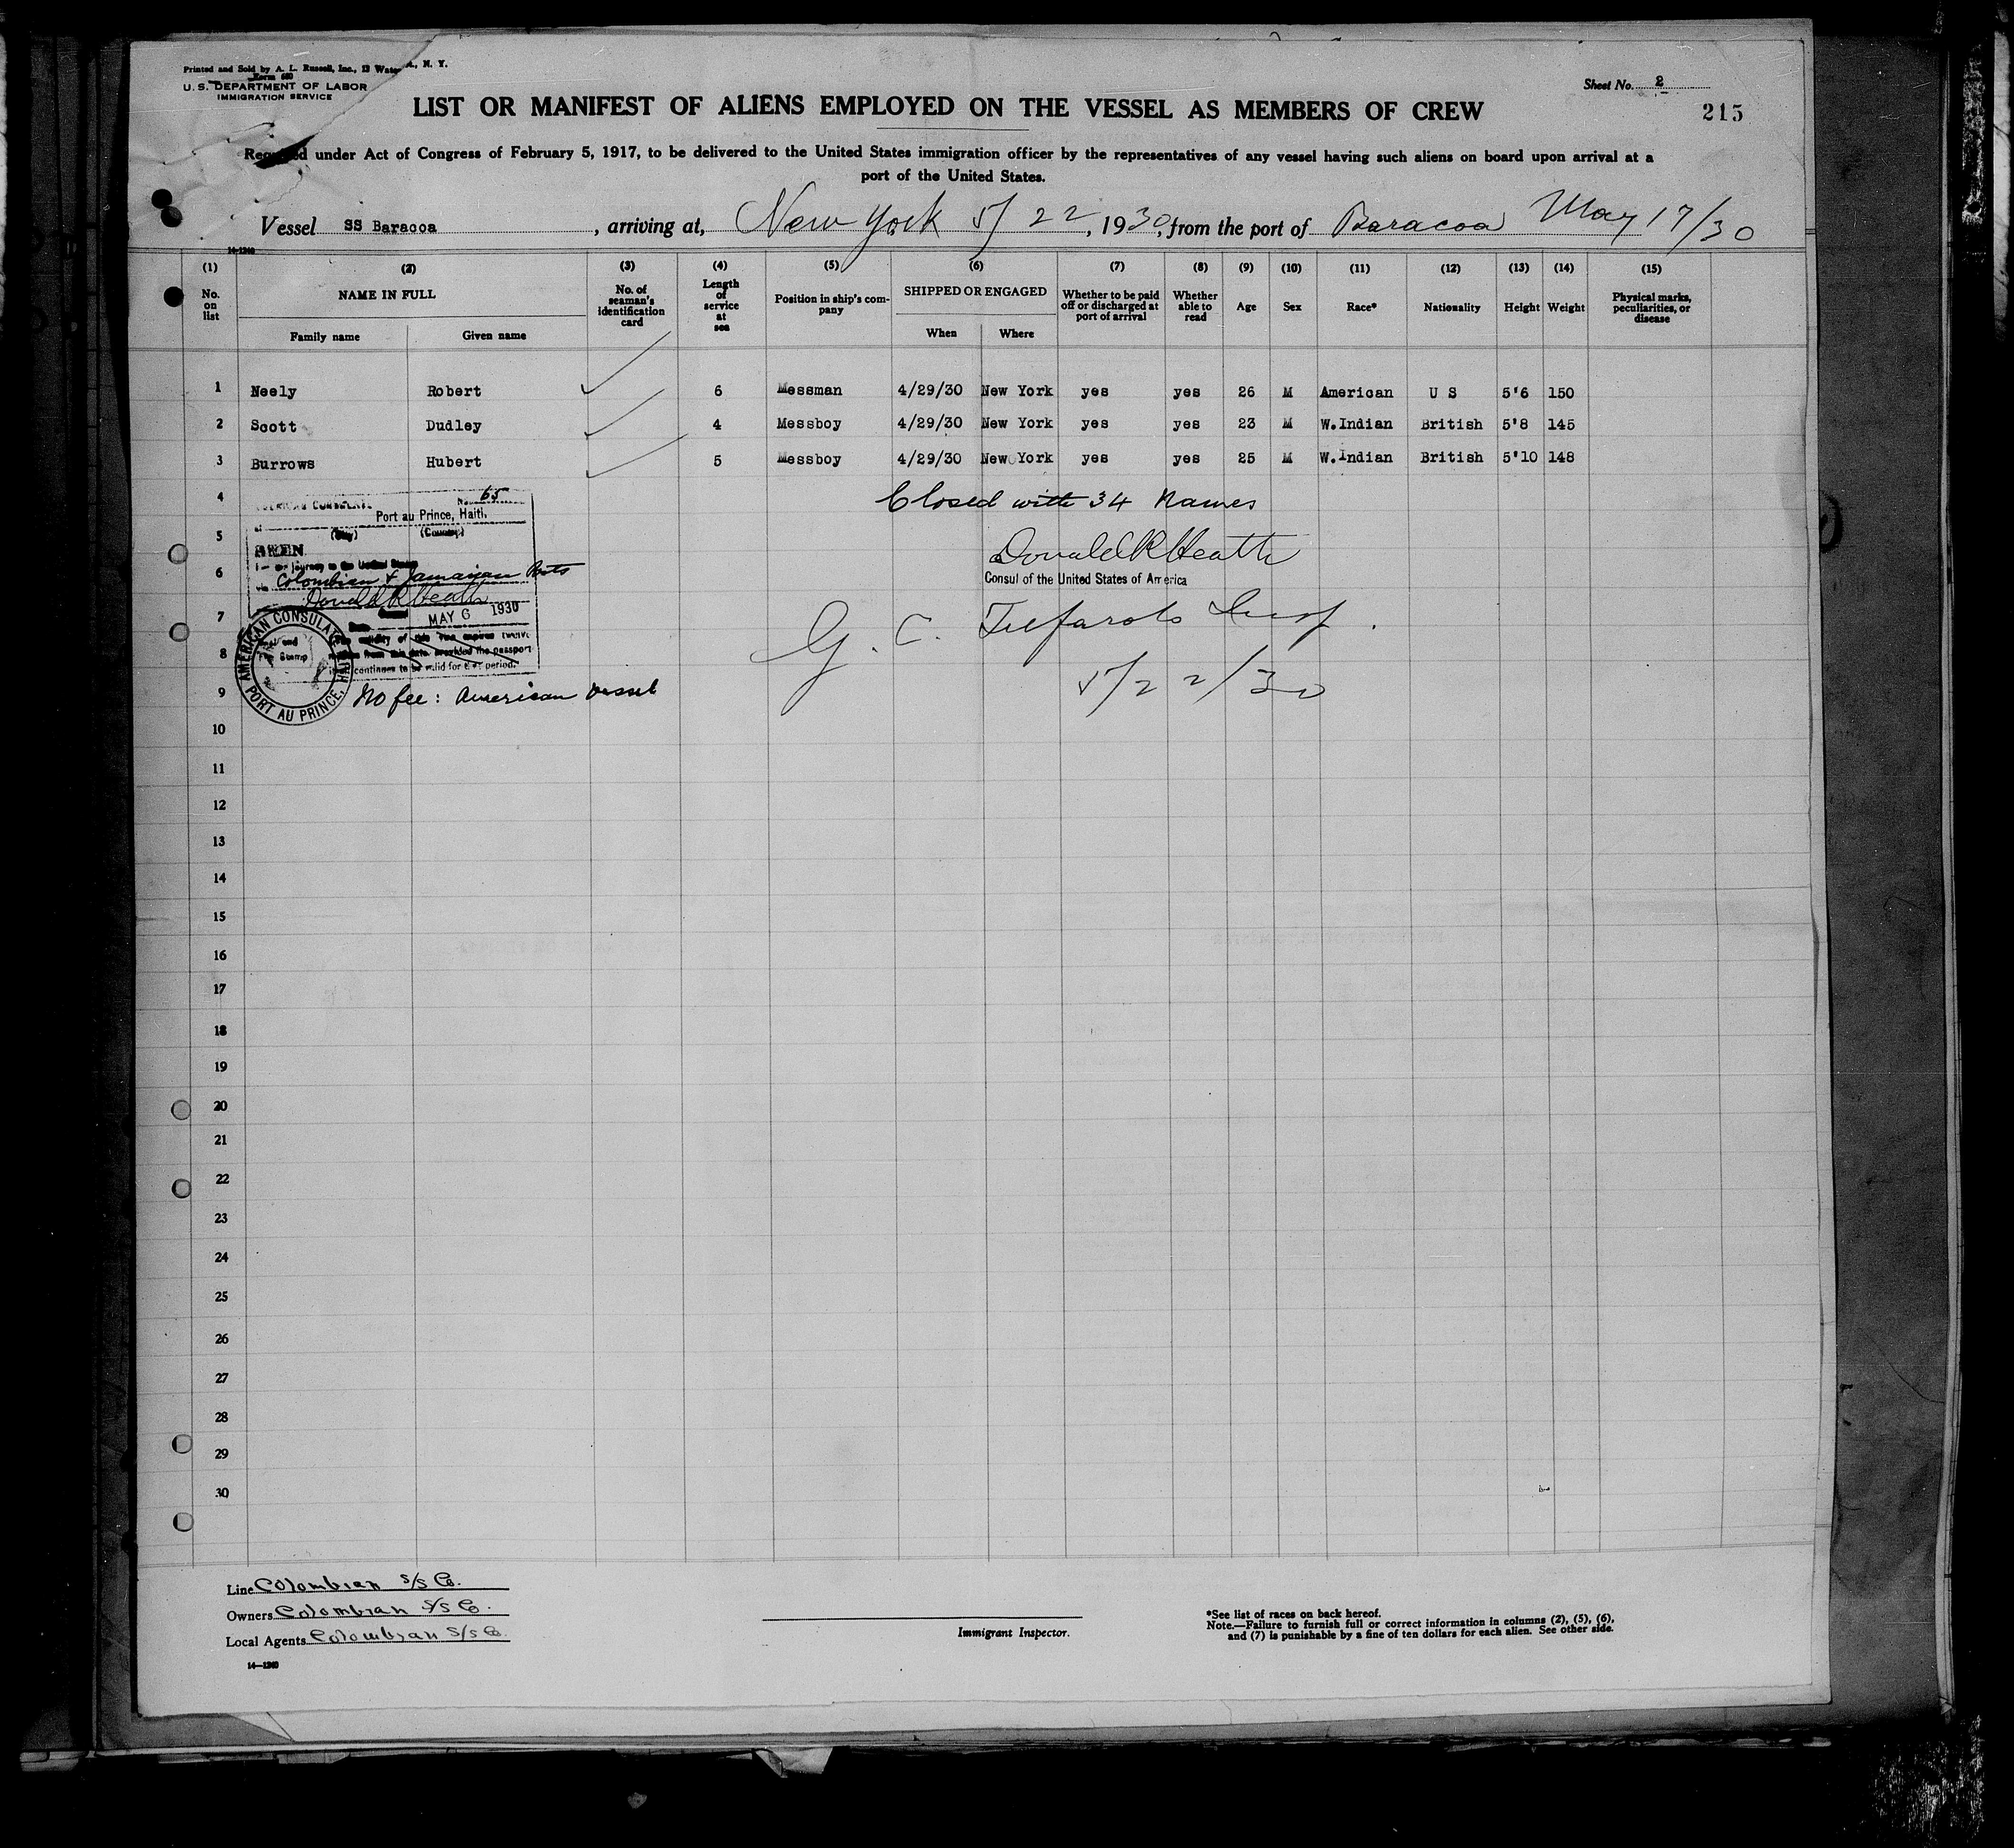 Printed and Sold by A. L. Russell, Inc., 13 Water , N. Y.
Form 680
U. S. DEPARTMENT OF LABOR
IMMIGRATION SERVICE
Sheet No. 2
LIST OR MANIFEST OF ALIENS EMPLOYED ON THE VESSEL AS MEMBERS OF CREW
215
Required under Act of Congress of February 5, 1917, to be delivered to the United States immigration officer by the representatives of any vessel having such aliens on board upon arrival at a
port of the United States.
Vessel SS Baracoa , arriving at, New York 5/22 , 1930, from the port of Baracoa May 17/30
14-1240
(1) (2) (3) (4) (5) (6) (7) (8) (9) (10) (11) (12) (13) (14) (15)
No. on list NAME IN FULL No. of seaman's identification card Length of service at sea Position in ship's company SHIPPED OR ENGAGED Whether to be paid off or discharged at port of arrival Whether able to read Age Sex Race* Nationality Height Weight Physical marks, peculiarities, or disease
Family name Given name When Where
1 Neely Robert 6 Messman 4/29/30 New York yes yes 26 M American U S 5'6 150
2 Scott Dudley 4 Messboy 4/29/30 New York yes yes 23 M W.Indian British 5'8 145
3 Burrows Hubert 5 Messboy 4/29/30 New York yes yes 25 M W.Indian British 5'10 148
4
Closed with 34 Names
No. 65
Port au Prince, Haiti.
(City) (Country)
5
SEEN
Donald R Heath
Consul of the United States of America
6
Colombian & Jamaican Ports
Donald R Heath
7
MAY 6 1930
G. C. Insp.
8
continues to be valid for that period.
AMERICAN CONSULATE PORT AU PRINCE, HAITI
5/22/30
9
No fee: American vessel
10
11
12
13
14
15
16
17
18
19
20
21
22
23
24
25
26
27
28
29
30
Line Colombian S/S Co.
Owners Colombian S/S Co.
Local Agents Colombian S/S Co.
14—1240
Immigrant Inspector.
*See list of races on back hereof.
Note.—Failure to furnish full or correct information in columns (2), (5), (6),
and (7) is punishable by a fine of ten dollars for each alien. See other side.